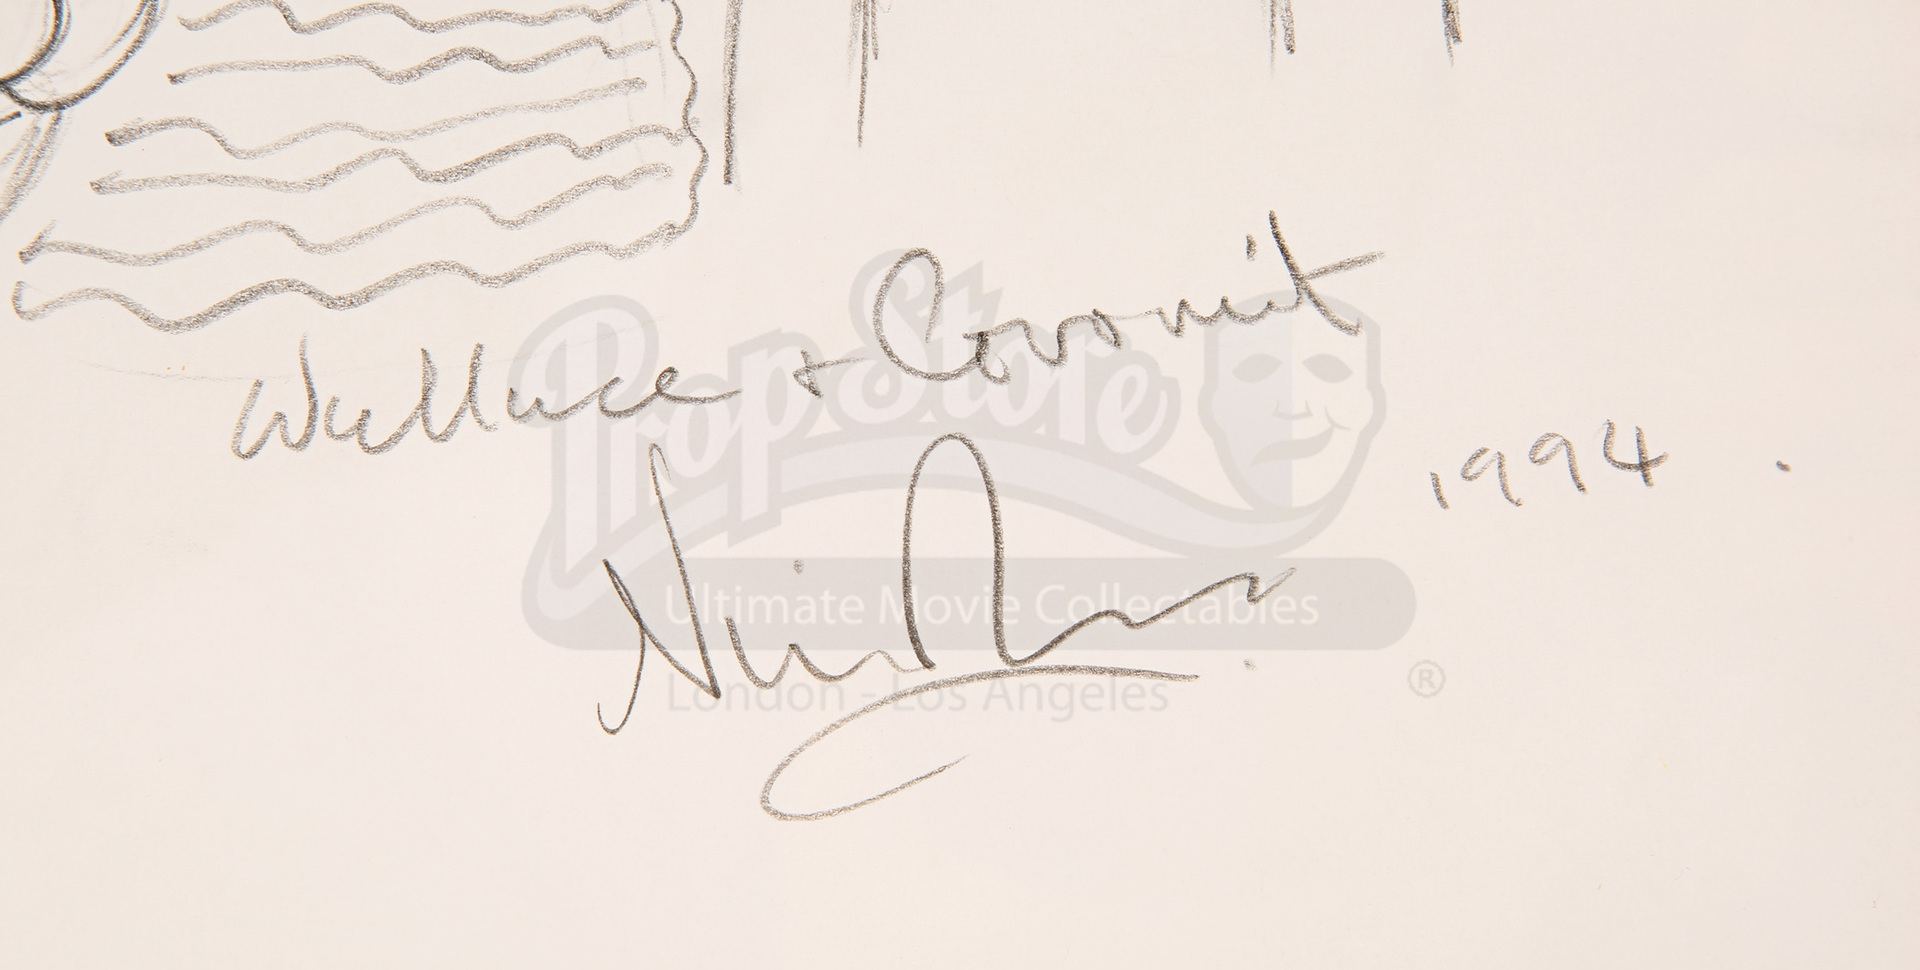 Wallace + Gromit
1994.
Nick
PropStore
Ultimate Movie Collectables
London - Los Angeles
®